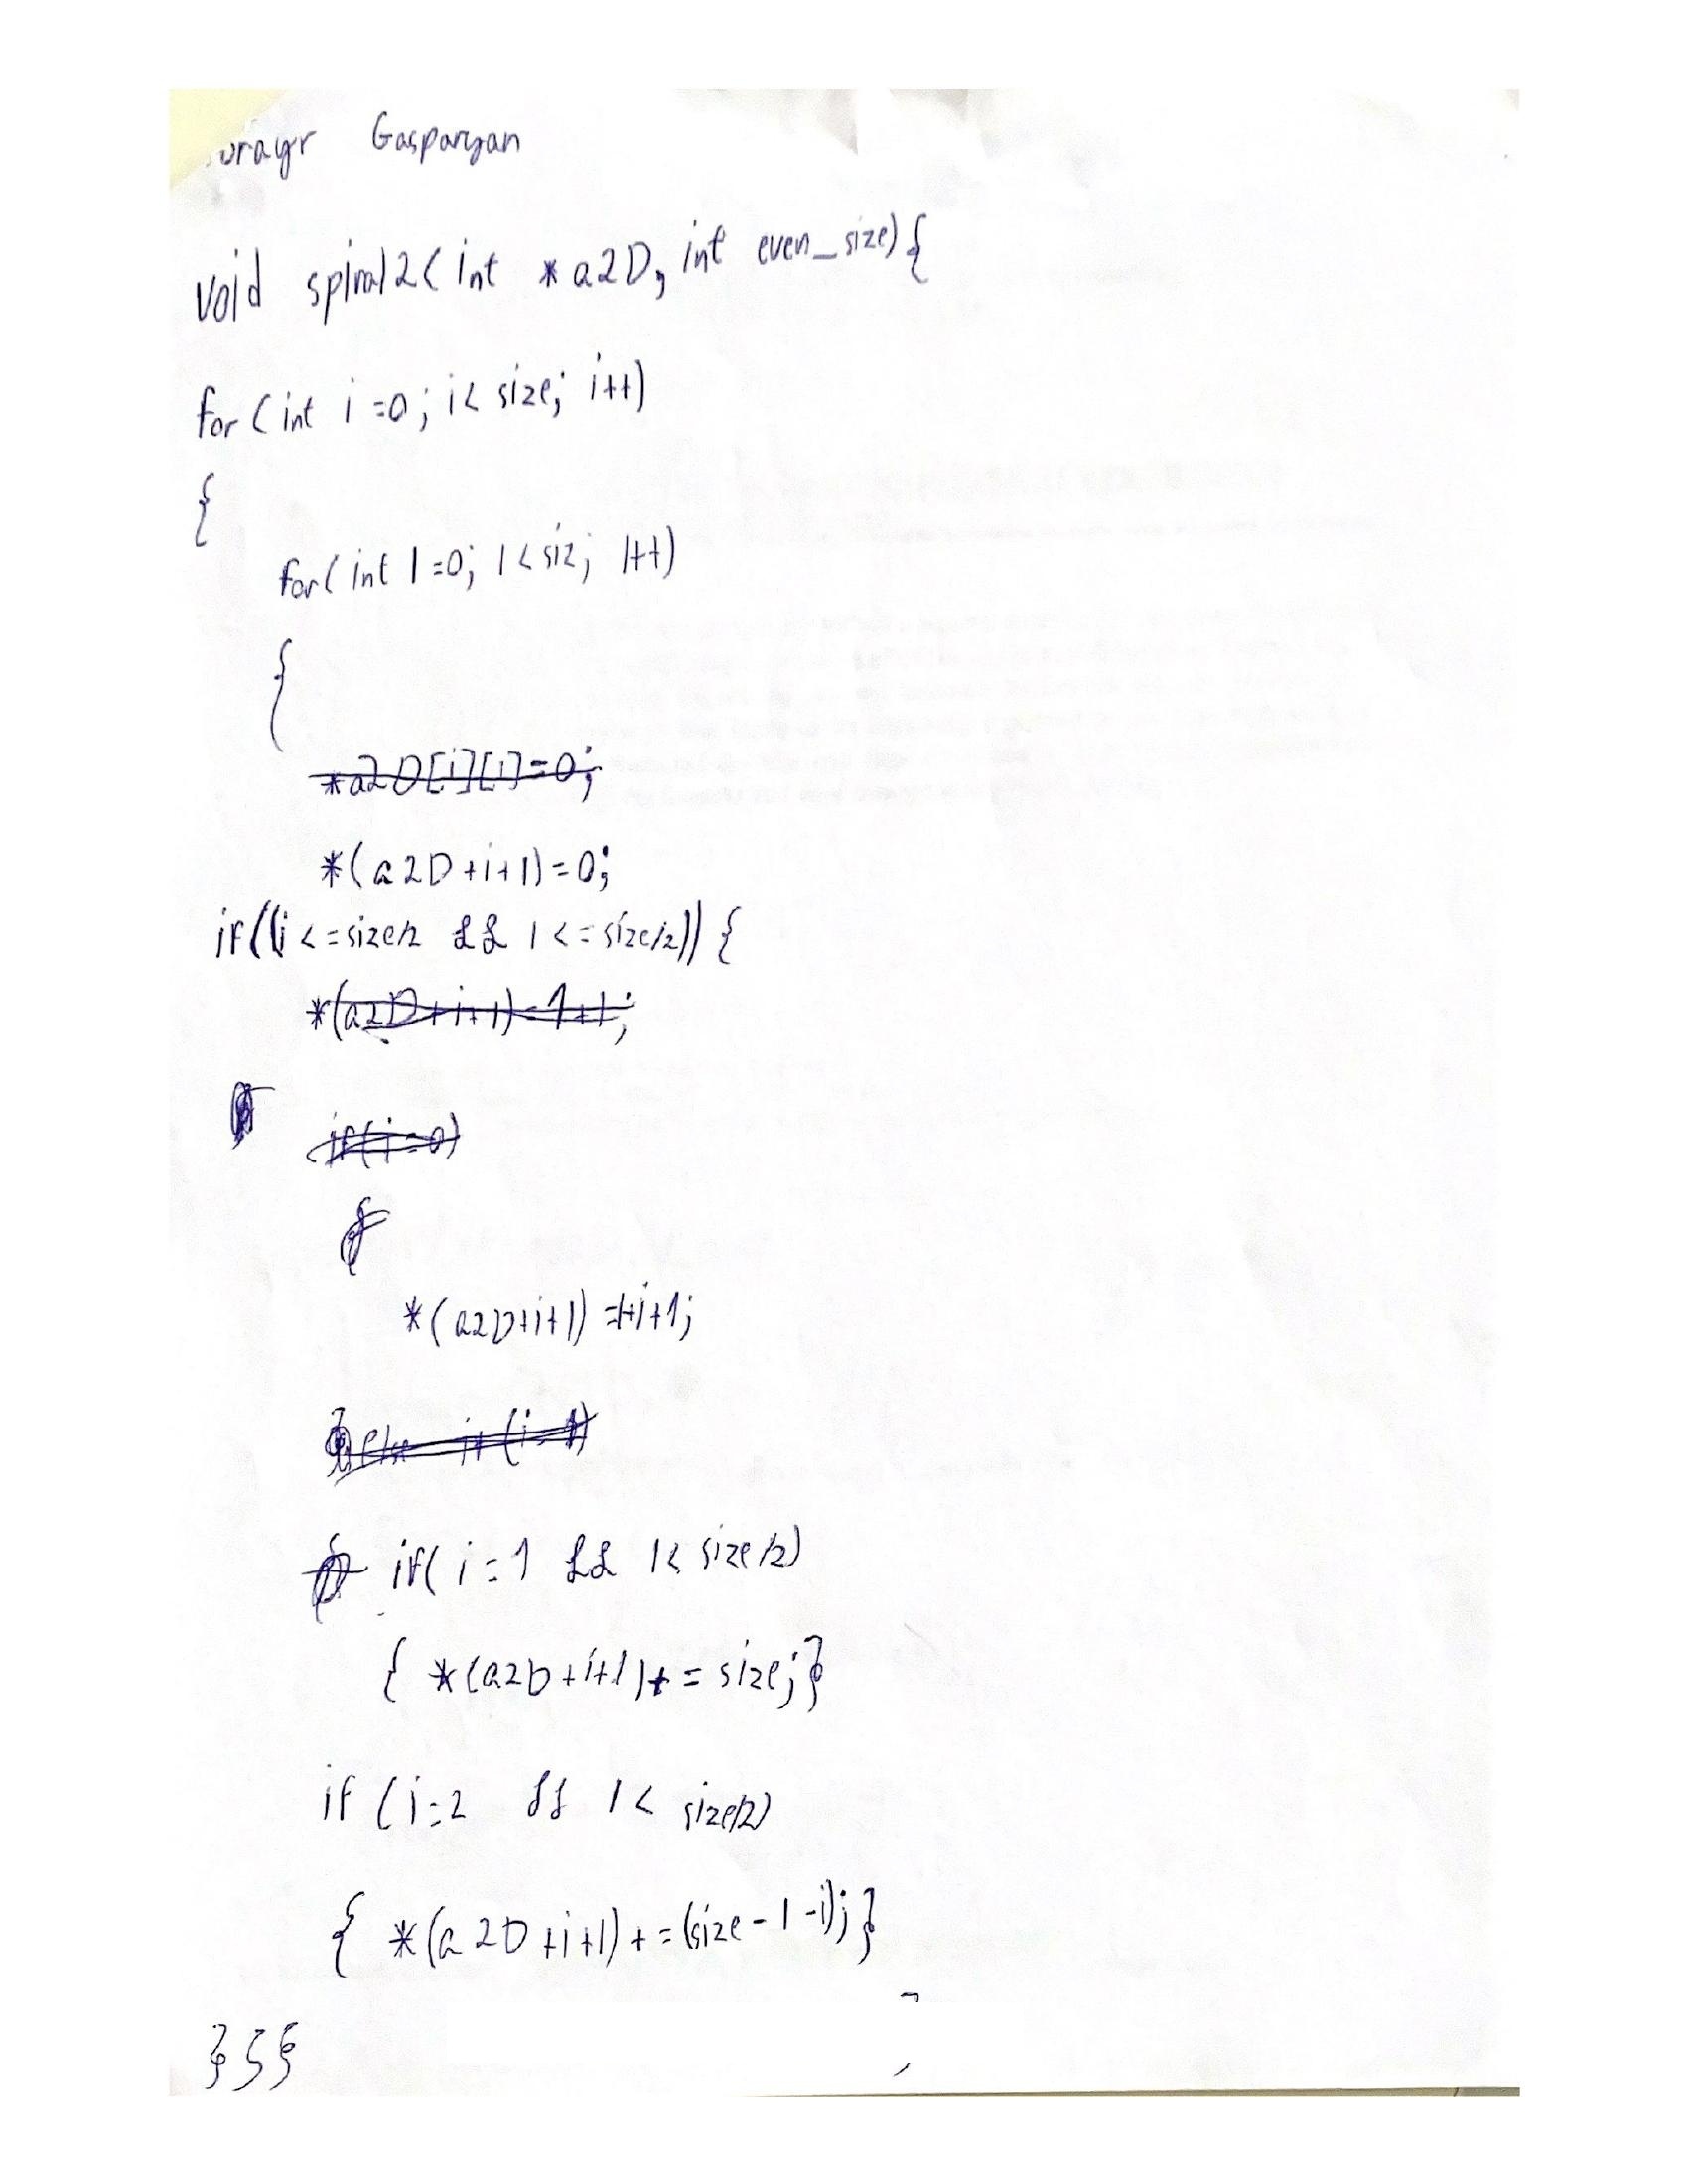 Gasparyan
void spiral2(int *a2D, int even_size){
for(int i=0; i< size; i++)
{
for(int l=0; l<siz; l++)
{
*a2D[i][l]=0;
*(a2D+i+l)=0;
if((i<=size/2 && l<=size/2)) {
*(a2D+i+l)=1+l;
if(i=0)
{
*(a2D+i+l)=l+i+1;
}else if(i=1)
if( i=1 && l< size/2)
{ *(a2D+i+l)+= size;}
if (i=2 && l< size/2)
{ *(a2D+i+l)+=(size-1-i);}
}}}